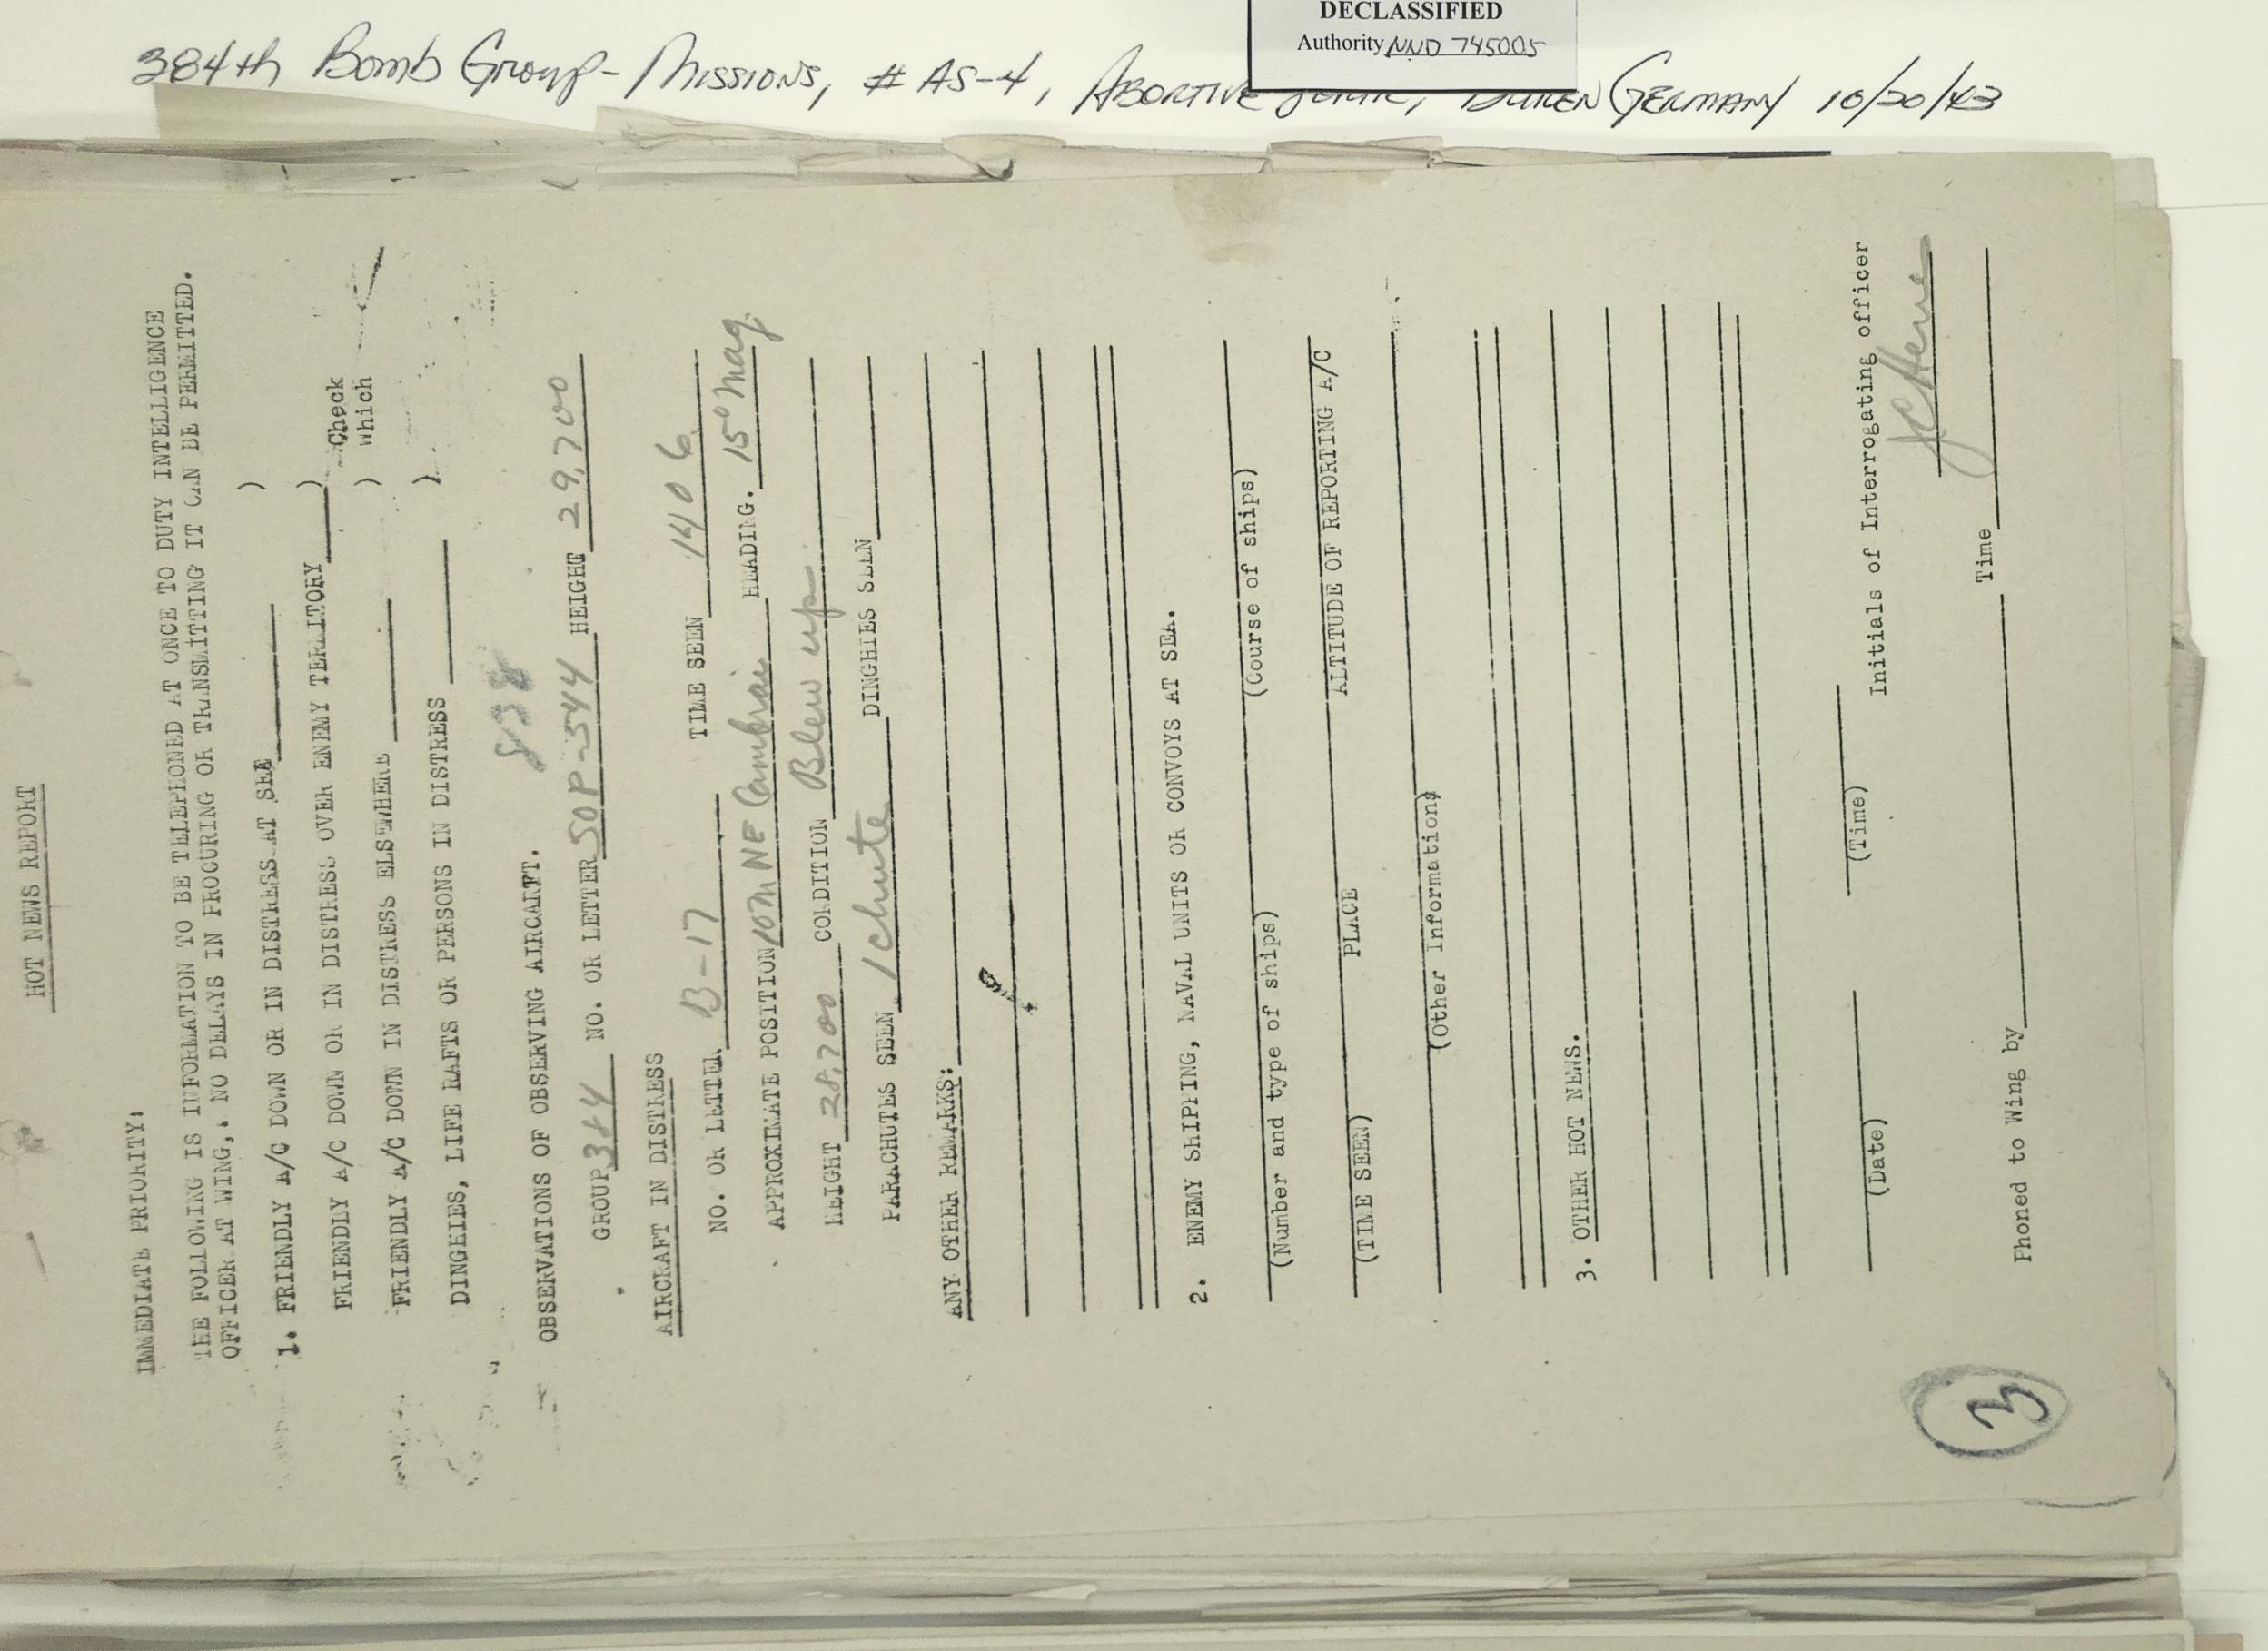 DECLASSIFIED
Authority NND 745005
384th Bomb Group - Missions, # AS-4, Abortive Germany 10/20/43
HOT NEWS REPORT
IMMEDIATE PRIORITY:
THE FOLLOWING IS INFORMATION TO BE TELEPHONED AT ONCE TO DUTY INTELLIGENCE
OFFICER AT WING,. NO DELAYS IN PROCURING OR TRANSMITTING IT CAN BE PERMITTED.
1. FRIENDLY A/C DOWN OR IN DISTRESS AT SEA )
FRIENDLY A/C DOWN OR IN DISTRESS OVER ENEMY TERRITORY ) Check
FRIENDLY A/C DOWN IN DISTRESS ELSEWHERE ) Which
DINGHIES, LIFE RAFTS OR PERSONS IN DISTRESS )
838
OBSERVATIONS OF OBSERVING AIRCARFT.
GROUP 384 NO. OR LETTER SOP-544 HEIGHT 29,700
AIRCRAFT IN DISTRESS
NO. OR LETTER B-17 TIME SEEN 1406
APPROXIMATE POSITION 10m NE Cambrai HEADING. 15° Mag.
HEIGHT 28,700 CONDITION Blew up
PARACHUTES SEEN 1 chute DINGHIES SEEN
ANY OTHER REMARKS:
2. ENEMY SHIPPING, NAVAL UNITS OR CONVOYS AT SEA.
(Number and type of ships) (Course of ships)
(TIME SEEN) PLACE ALTITUDE OF REPORTING A/C
(Other Information)
3. OTHER HOT NEWS.
(Date) (Time) Initials of Interrogating officer
Phoned to Wing by Time
3